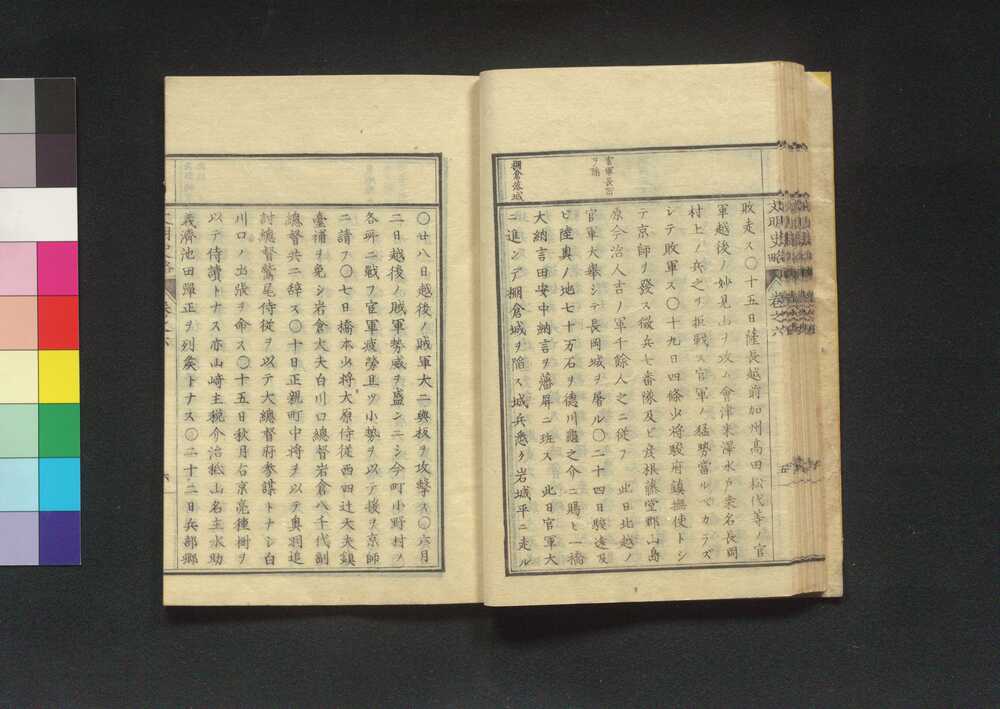 文明史略
卷之六
敗走ス〇十五日薩長越前加州高田松代等ノ官
軍越後ノ妙見山ヲ攻ム會津米澤水戸桒名長岡
村上ノ兵之ヲ拒戰ス官軍ノ猛勢當ルベカラズ
シテ敗軍ス〇十九日四條少將駿府鎮撫使トシ
テ京師ヲ發ス徴兵七番隊及ビ彦根藤堂郡山高
原今治人吉ノ軍千餘人之ニ從フ 此日北越ノ
官軍長岡
ヲ陥
官軍大擧シテ長岡城ヲ屠ル〇二十四日駿遠及
ビ陸奥ノ地七十万石ヲ德川龜之介ニ賜ヒ一橋
大納言田安中納言ヲ藩屏ニ班ス 此日官軍大
棚倉落城
ニ進ンデ棚倉城ヲ陷ス城兵悉ク岩城平ニ走ル
〇廿八日越後ノ賊軍大ニ與板ヲ攻擊ス〇六月
二日越後ノ賊軍勢威ヲ盛ンニシ今町小野村ノ
各所ニ戰フ官軍疲勞且ツ小勢ヲ以テ援ヲ京師
ニ請フ〇七日橋本少將大原侍從西四辻大夫鎮
臺補ヲ免シ岩倉大夫白川口總督岩倉八千代副
總督共ニ辞ス〇十日正親町中将ヲ以テ奥羽追
討總督鷲尾侍從ヲ以テ大總督府參謀トナシ白
川口ノ出張ヲ命ス〇十五日秋月右京亮種樹ヲ
以テ侍讀トナス亦山崎主税介治祗山名主水助
義濟池田彈正ヲ列矦トナス〇二十二日兵部卿